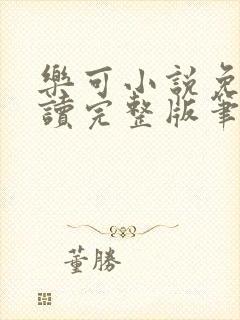 樂可小說免
讀完整版筆
董勝